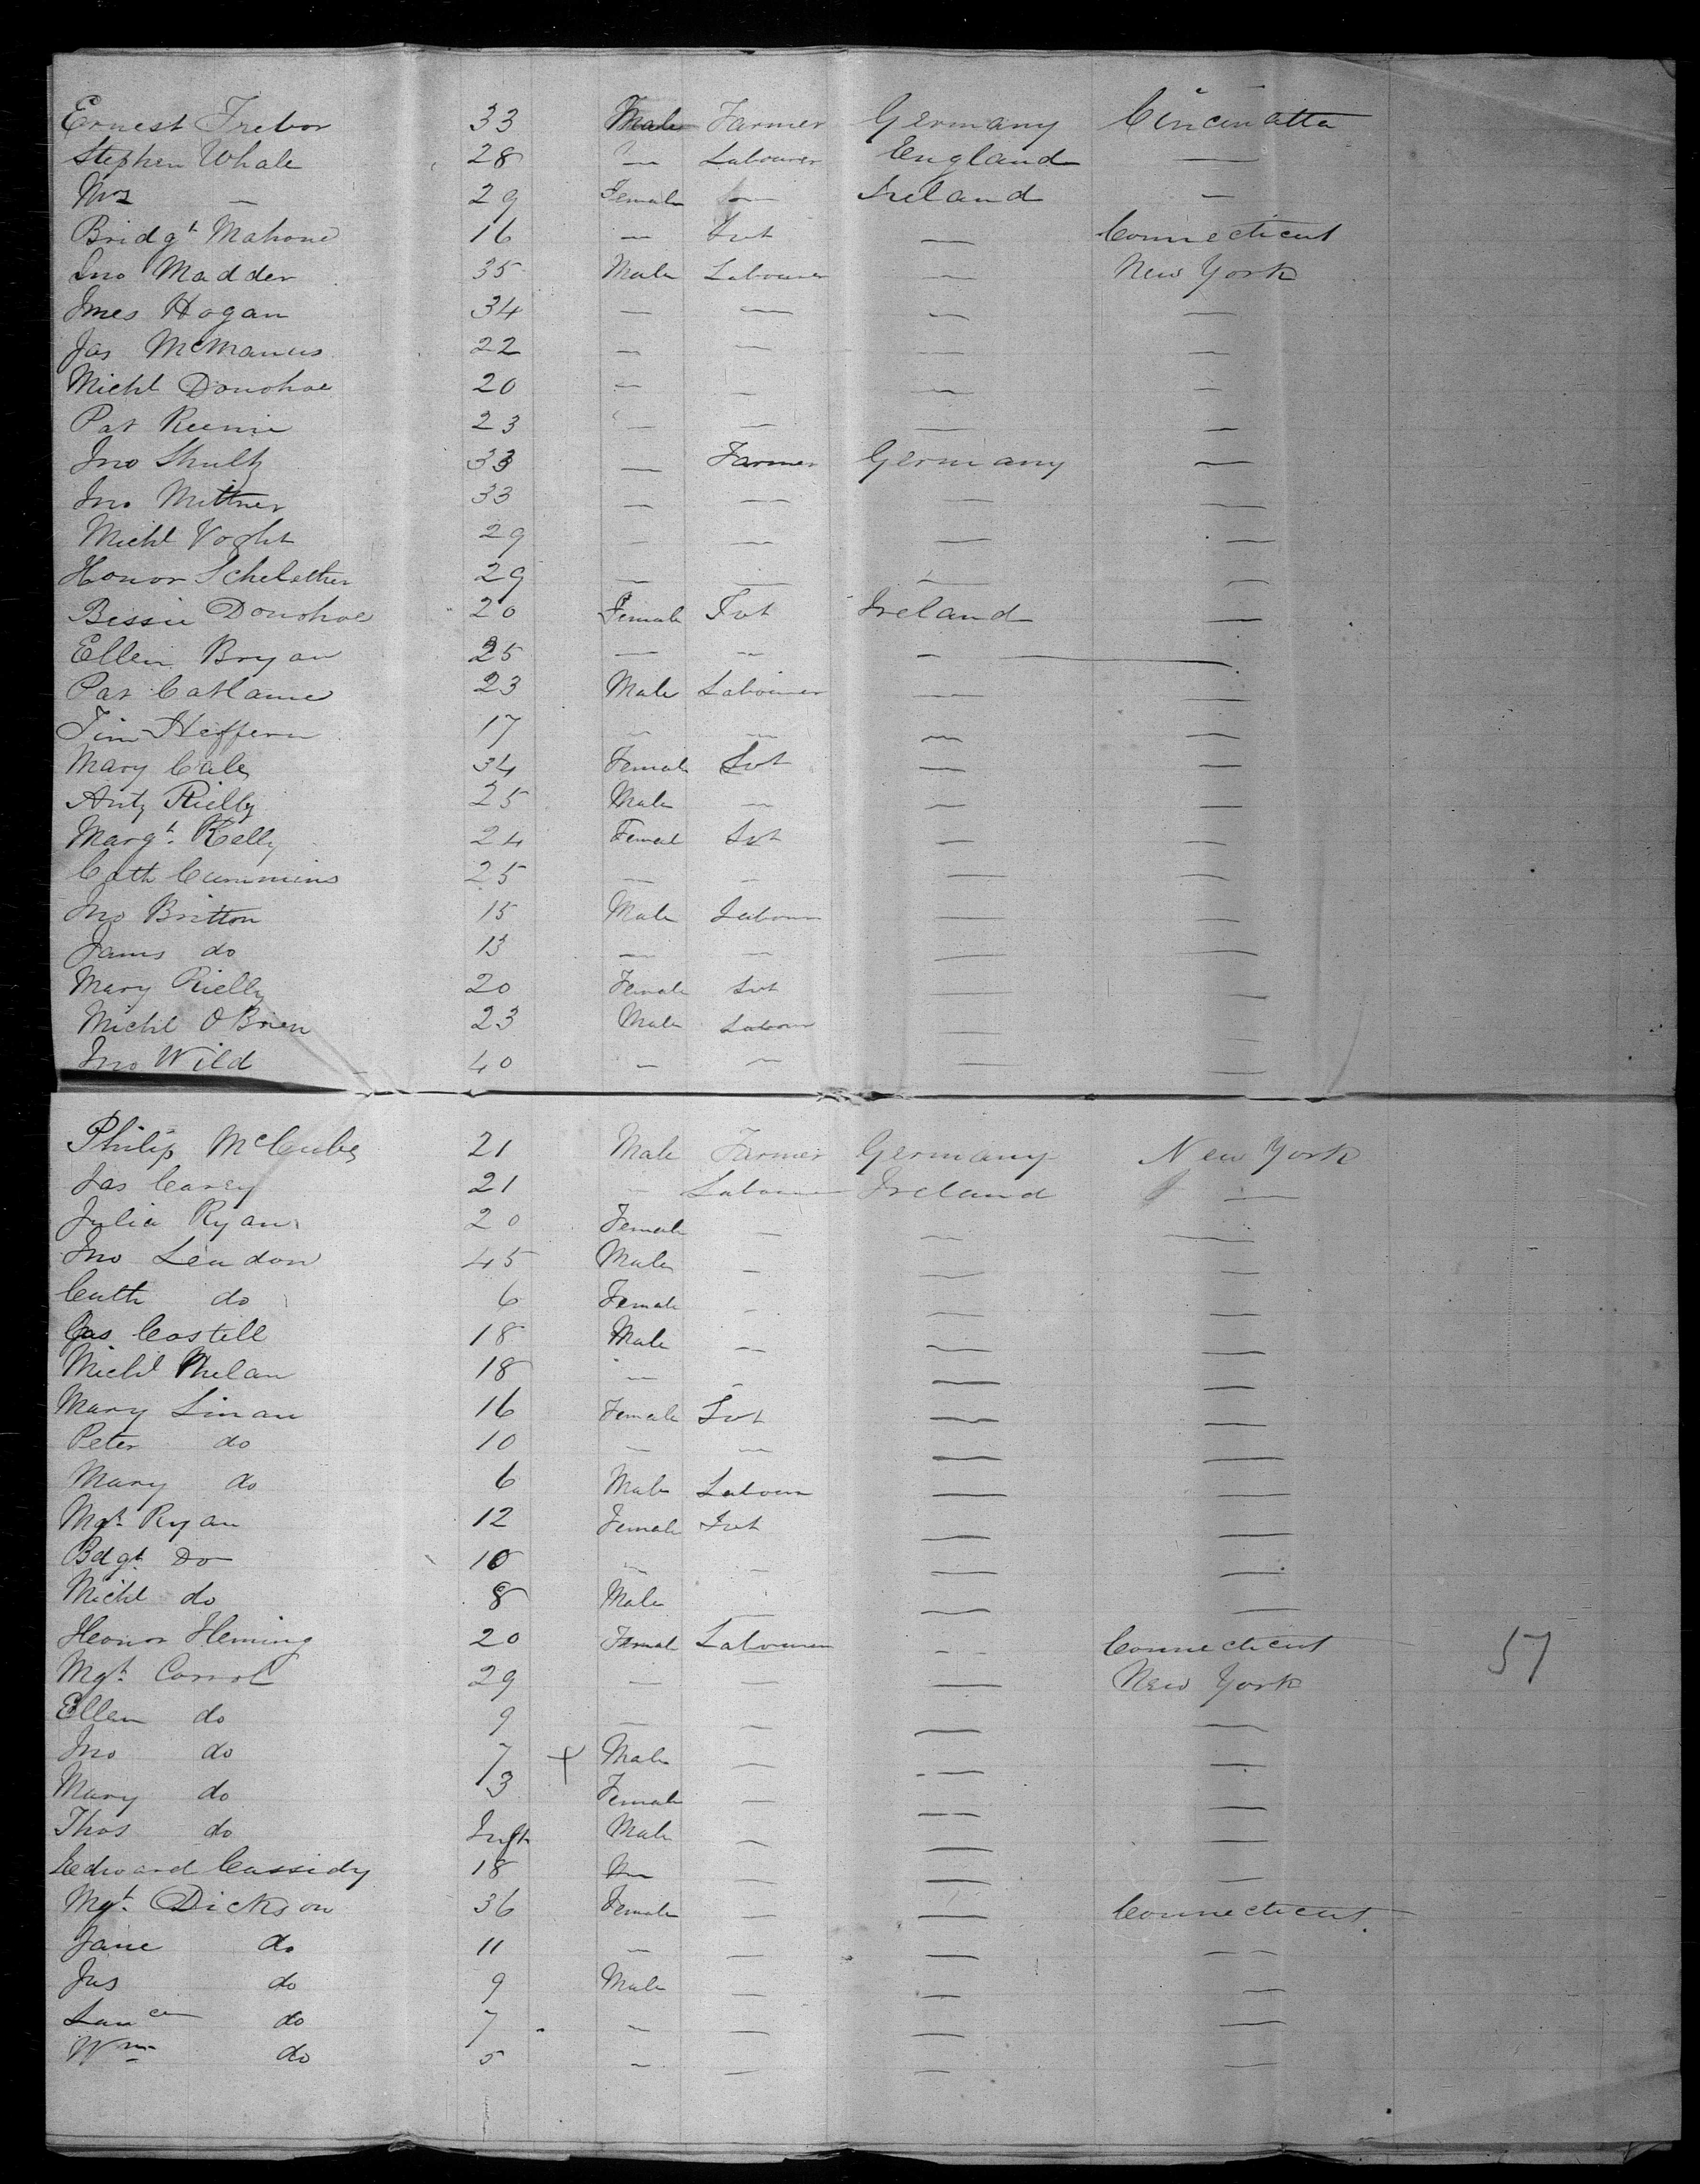 Ernest Trebor 33 Male Farmer Germany Cincinatta
Stephen Whale 28 — Labourer England —
Mrs — 29 Female — Ireland —
Bridgt Mahone 16 — Svt — Connecticut
Jno Madden 35 Male Labourer — New York
Jmes Hogan 34 — — — —
Jas McManus 22 — — — —
Michl Donohoe 20 — — — —
Pat 23 — — — —
Jno Shultz 33 — Farmer Germany —
Jno Mittner 33 — — — —
Michl Voght 29 — — — —
Honor 29 — — — —
Bessie Donohoe 20 Female Svt Ireland —
Ellen Bryan 25 — — — —
Pat 23 Male Labourer — —
Tim Heffern 17 — — — —
Mary 34 Female Svt — —
Anty Rielly 25 Male — — —
Margt Kelly 24 Femal Svt — —
Cath Cummins 25 — — — —
Jno Britton 15 Male Labour — —
James do 13 — — — —
Mary Rielly 20 Female Svt — —
Michl OBrien 23 Male Labour — —
Jno Wild 40 — — — —
Philip 21 Male Farmer Germany New York
Jas Carey 21 — Labourer Ireland —
Julia Ryan 20 Female — — —
Jno Leadon 45 Male — — —
Cath do 6 Female — — —
Jas Costell 18 Male — — —
Michl Phelan 18 — — — —
Mary Linan 16 Female Svt — —
Peter do 10 — — — —
Mary do 6 Male Labour — —
Mgt Ryan 12 Female Svt — —
Bdgt Do 10 — — — —
Michl do 8 Male — — —
Honor Fleming 20 Femal Labourer — Connecticut 57
Mgt Carrol 29 — — — New York
Ellen do 9 — — — —
Jno do 7 + Male — — —
Mary do 3 Female — — —
Thos do Inft Male — — —
Edward Cassidy 18 — — — —
Mgt Dickson 36 Female — — Connecticut
Jane do 11 — — — —
Jas do 9 Male — — —
do 7 — — — —
Wm do 5 — — — —